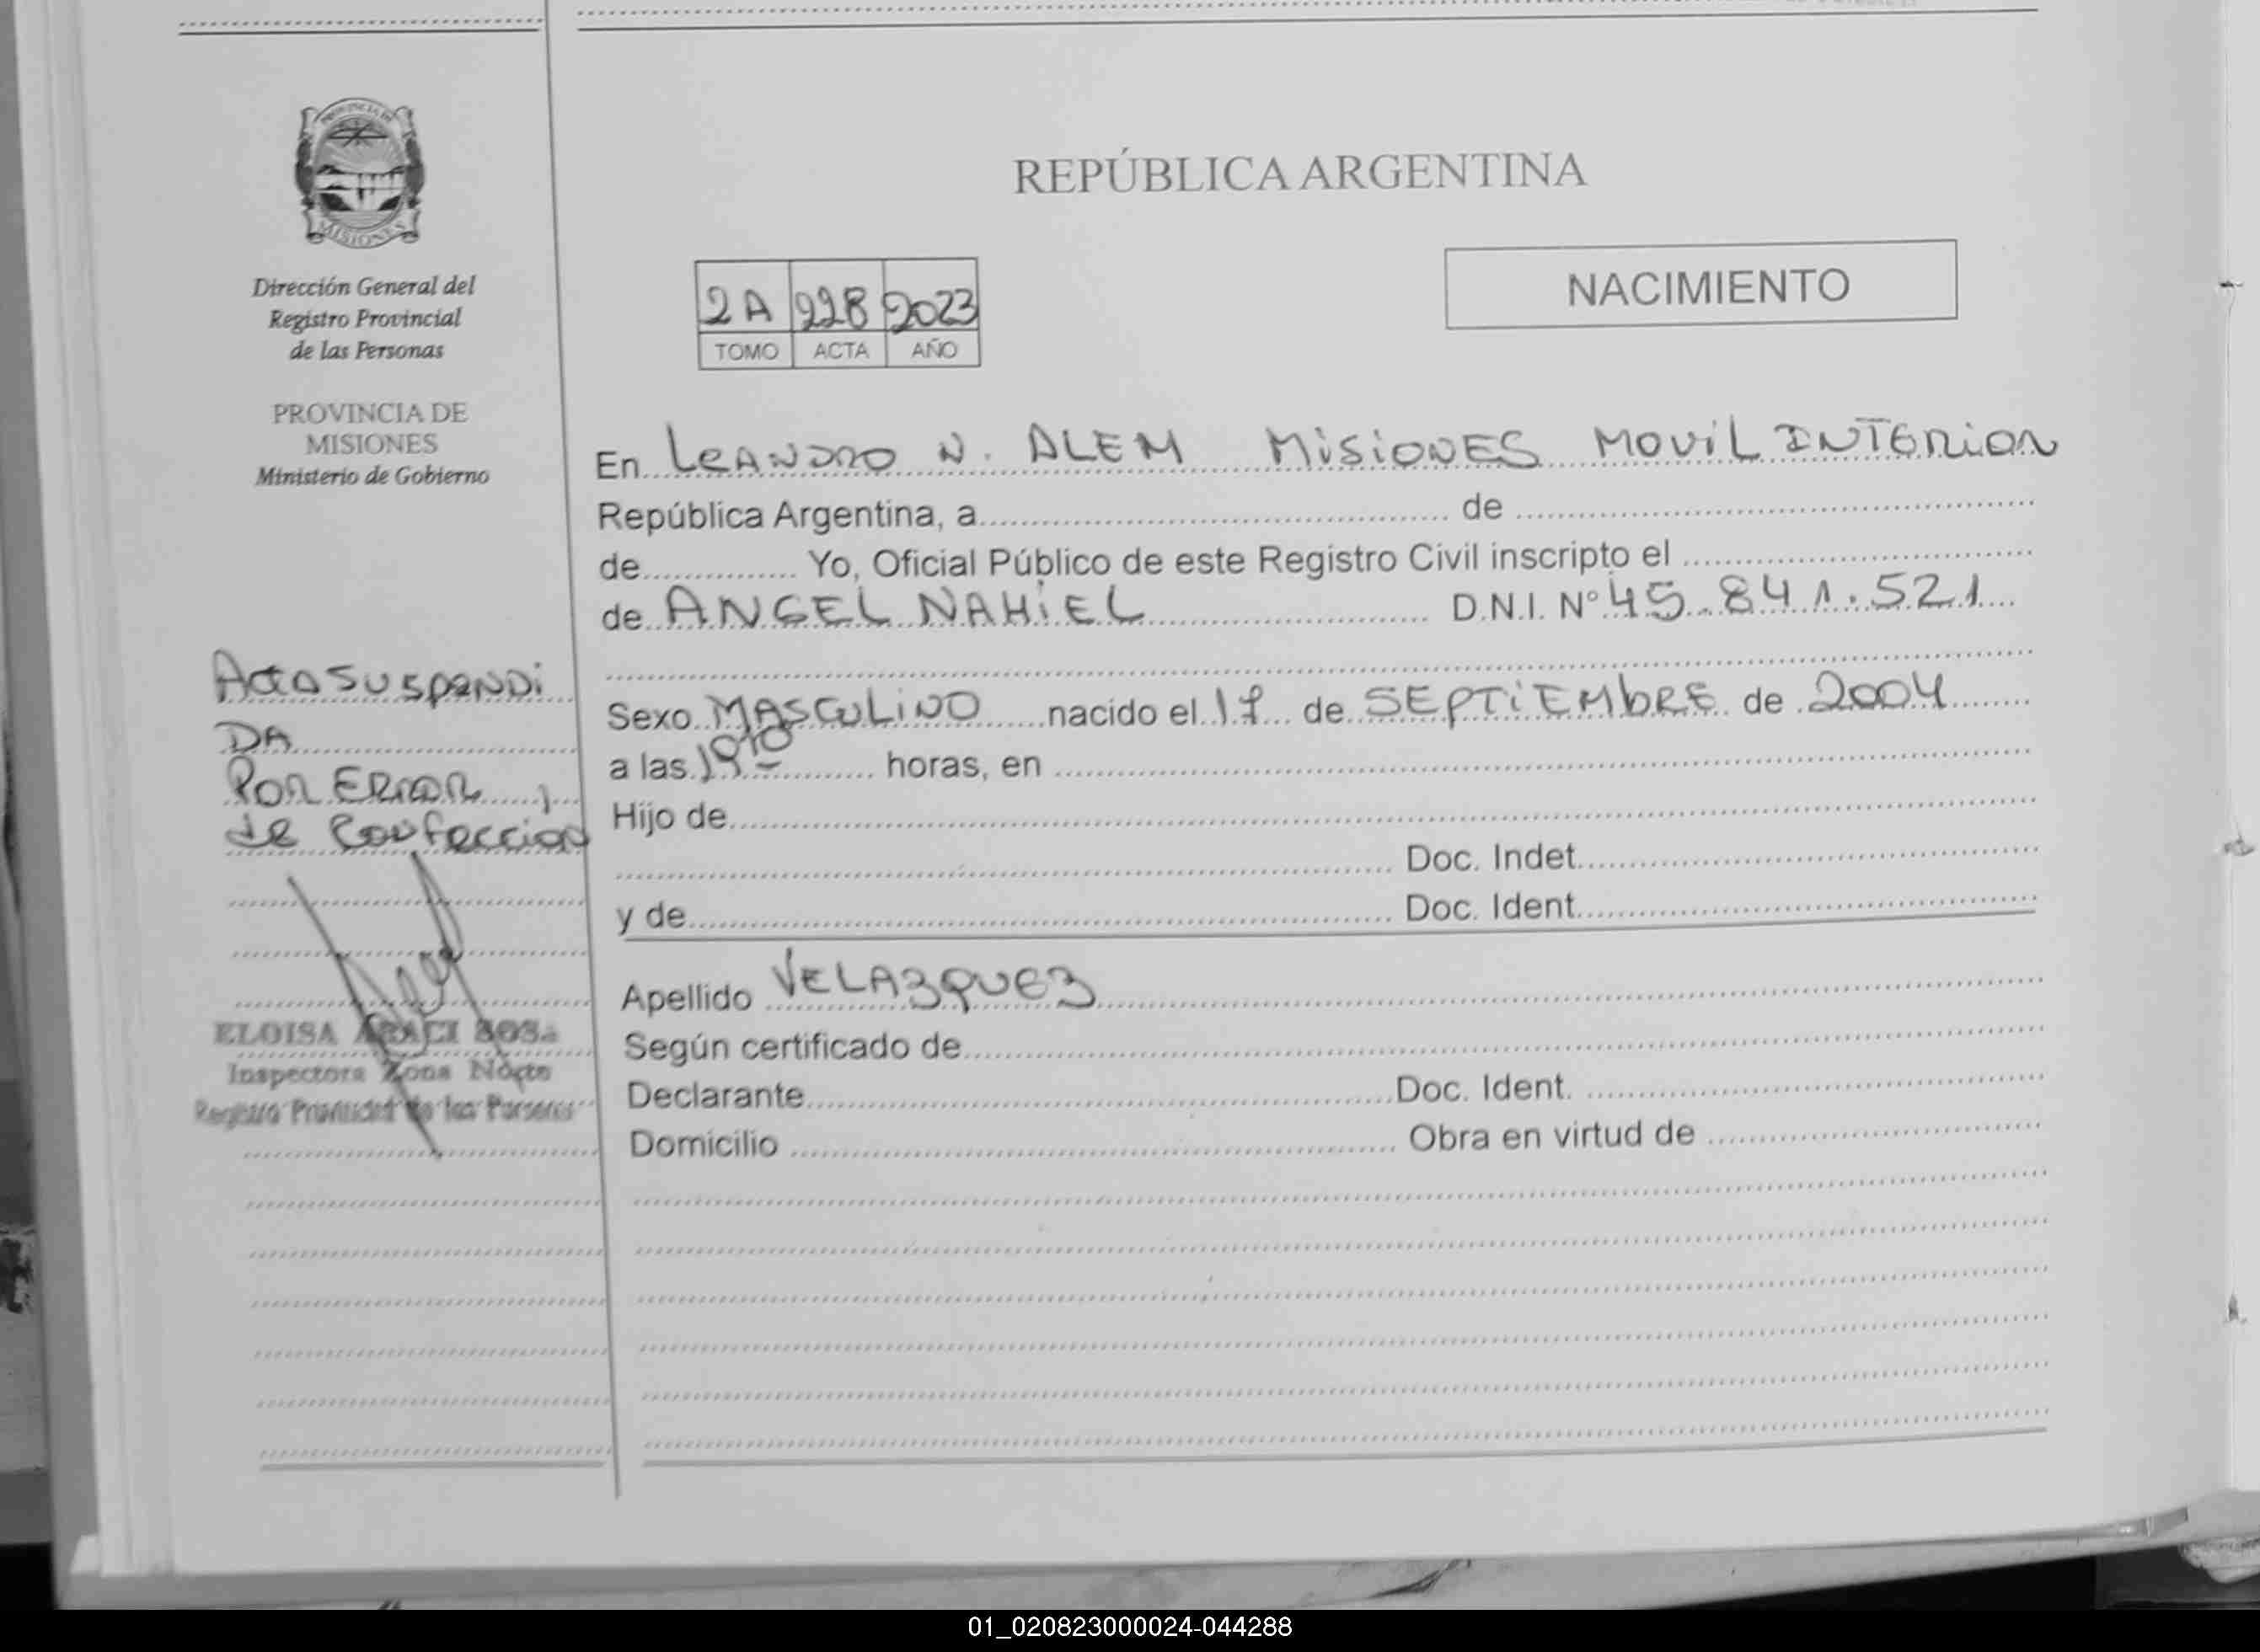 PROVINCIA DE
MISIONES
Dirección General del
Registro Provincial
de las Personas
PROVINCIA DE
MISIONES
Ministerio de Gobierno
Acta SUSPENDI
DA
POR ERROR
de Confeccion
ELOISA ARACI SOSA
Inspectora Zona Norte
Registro Provincial de las Personas
REPÚBLICA ARGENTINA
2A 228 2023
TOMO ACTA AÑO
NACIMIENTO
En LEANDRO N. ALEM MISIONES MOVIL INTERIOR
República Argentina, a de
de Yo, Oficial Público de este Registro Civil inscripto el
de ANGEL NAHIEL D.N.I. N° 45.841.521
Sexo MASCULINO nacido el 17 de SEPTIEMBRE de 2004
a las horas, en
Hijo de
Doc. Indet.
y de Doc. Ident.
Apellido VELAZQUEZ
Según certificado de
Declarante Doc. Ident.
Domicilio Obra en virtud de
01_020823000024-044288